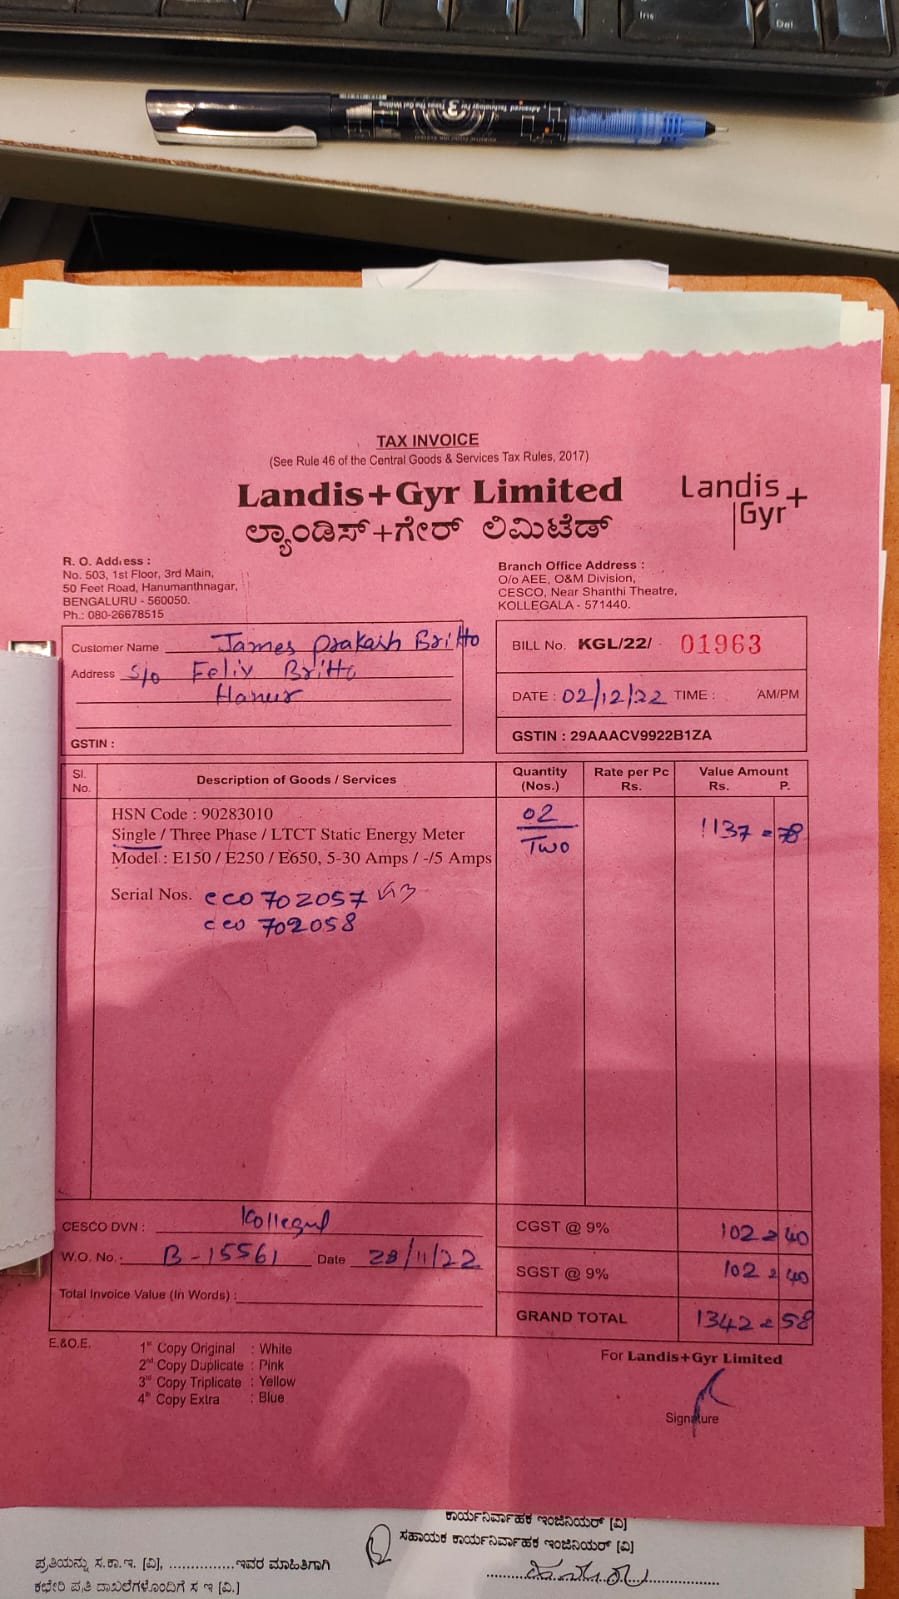 Ins
Del
Advanced Technology For
TAX INVOICE
(See Rule 46 of the Central Goods & Services Tax Rules, 2017)
Landis+Gyr Limited
ಲ್ಯಾಂಡಿಸ್+ಗೇರ್ ಲಿಮಿಟೆಡ್
Landis
Gyr+
R. O. Address :
No. 503, 1st Floor, 3rd Main,
50 Feet Road, Hanumanthnagar,
BENGALURU - 560050.
Ph.: 080-26678515
Branch Office Address :
O/o AEE, O&M Division,
CESCO, Near Shanthi Theatre,
KOLLEGALA - 571440.
Customer Name James Prakash Britto
Address S/o Felix Britto
Hanur
GSTIN :
BILL No. KGL/22/ 01963
DATE : 02/12/22 TIME : AM/PM
GSTIN : 29AAACV9922B1ZA
Sl. No. Description of Goods / Services Quantity (Nos.) Rate per Pc Rs. Value Amount Rs. P.
HSN Code : 90283010 02
Single / Three Phase / LTCT Static Energy Meter Two 1137=78
Model : E150 / E250 / E650, 5-30 Amps / -/5 Amps
Serial Nos. CC0702057
CC0 702058
CESCO DVN : Kollegal
W.O. No.: B-15561 Date 28/11/22
Total Invoice Value (In Words) :
CGST @ 9% 102=40
SGST @ 9% 102=40
GRAND TOTAL 1342=58
E.&O.E.
1st Copy Original : White
2nd Copy Duplicate : Pink
3rd Copy Triplicate : Yellow
4th Copy Extra : Blue
For Landis+Gyr Limited
Signature
ಕಾರ್ಯನಿರ್ವಾಹಕ ಇಂಜಿನಿಯರ್ [ವಿ]
ಸಹಾಯಕ ಕಾರ್ಯನಿರ್ವಾಹಕ ಇಂಜಿನಿಯರ್ [ವಿ]
ಪ್ರತಿಯನ್ನು ಸ.ಕಾ.ಇ. [ವಿ], ................ಇವರ ಮಾಹಿತಿಗಾಗಿ
ಕಛೇರಿ ಪ್ರತಿ ದಾಖಲೆಗಳೊಂದಿಗೆ ಸ ಇ [ವಿ.]